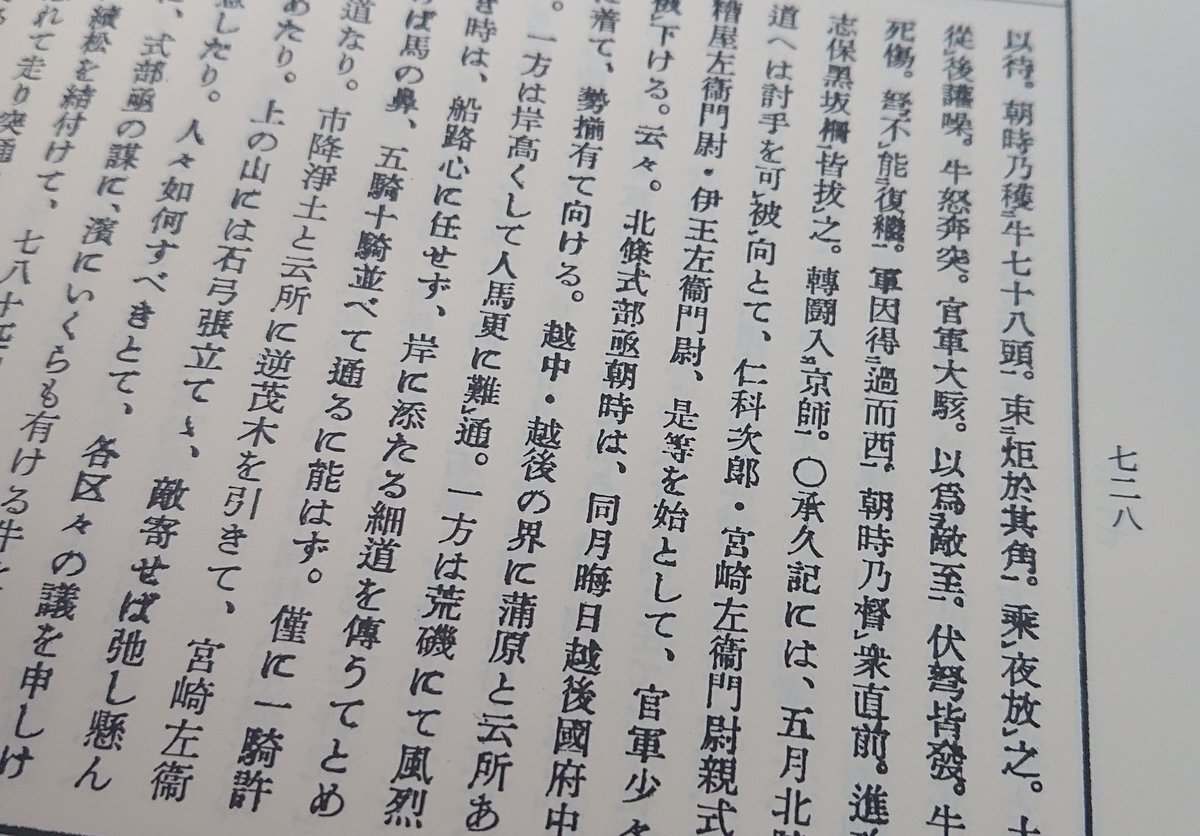 七二八
以待。朝時乃穫㆓牛七十八頭㆒。束㆓炬於其角㆒。乘㆑夜放㆑之。
從㆑後讙噪。牛怒奔突。官軍大駭。以爲㆓敵至㆒。伏弩皆發。牛
死傷。弩不㆑能㆓復繼㆒。軍因得㆓過而西㆒。朝時乃督㆑衆直前。進
志保黑坂柵皆拔㆑之。轉鬪入㆓京師㆒。〇承久記には、五月北陸
道へは討手を可㆑被㆑向とて、仁科次郎・宮崎左衞門尉親式
糟屋左衞門尉・伊王左衞門尉、是等を始として、官軍少々
被㆑下ける。云々。北條式部亟朝時は、同月晦日越後國府中
に着て、勢揃有て向ける。越中・越後の界に蒲原と云所あ
。一方は岸高くして人馬更に難㆑通。一方は荒磯にて風烈
き時は、船路心に任せず、岸に添たる細道を傳うてとめ
けば馬の鼻、五騎十騎並べて通るに能はず。僅に一騎許
道なり。市降淨土と云所に逆茂木を引きて、宮崎左衞
あたり。上の山には石弓張立てゝ、敵寄せば弛し懸ん
意したり。人々如何すべきとて、各区々の議を申しけ
に、式部亟の謀に、濱にいくらも有ける牛を
續松を結付けて、七八十
れて走り突通